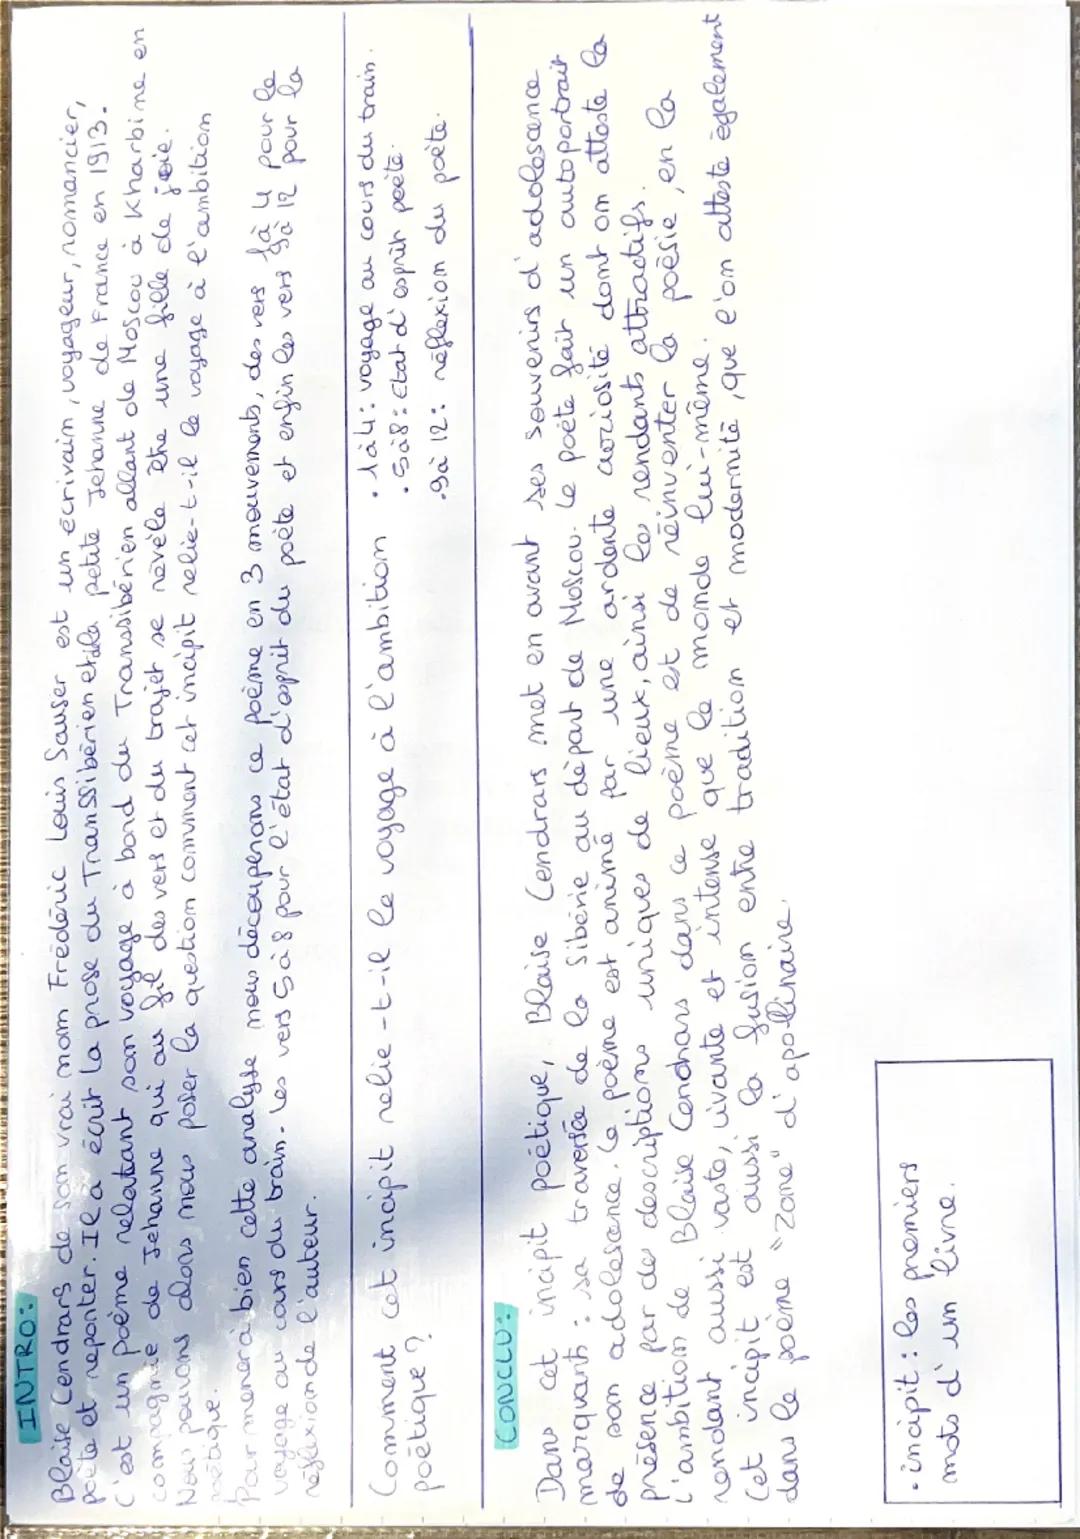 INTRO:
Blaise Cendrars de son vrai nom Frédéric Louis Sauser est un écrivain, voyageur, romancier,
poète et reporter. Il a écrit La prose du Transsibérien et de la petite Jehanne de France en 1913.
C'est un poème relatant son voyage à bord du Transsibérien allant de Moscou à Kharbine en
compagnie de Jehanne qui au fil des vers et du trajet se révèle être une fille de joie.
Nous pouvons alors nous poser la question comment cet incipit relie-t-il le voyage à l'ambition
poétique.
Pour mener à bien cette analyse nous découperons ce poème en 3 mouvements, des vers 1 à 4 pour le
voyage au cours du train. les vers 5 à 8 pour l'état d'esprit du poète et enfin les vers 9 à 12 pour la
réflexion de l'auteur.
Comment cet incipit relie-t-il le voyage à l'ambition
poétique ?
• 1 à 4 : voyage au cours du train.
• 5 à 8 : Etat d'esprit poète.
• 9 à 12 : réflexion du poète.
CONCLU:
Dans cet incipit poétique, Blaise Cendrars met en avant ses souvenirs d'adolescence
marquants : sa traversée de la Sibérie au départ de Moscou. Le poète fait un autoportrait
de son adolescence. Le poème est animé par une ardente curiosité dont on atteste la
présence par des descriptions uniques de lieux, ainsi les rendants attractifs.
L'ambition de Blaise Cendrars dans ce poème est de réinventer la poésie, en la
rendant aussi vaste, vivante et intense que le monde lui-même.
Cet incipit est aussi la fusion entre tradition et modernité, que l'on atteste également
dans le poème "Zone" d'apollinaire.
• incipit : les premiers
mots d'un livre.